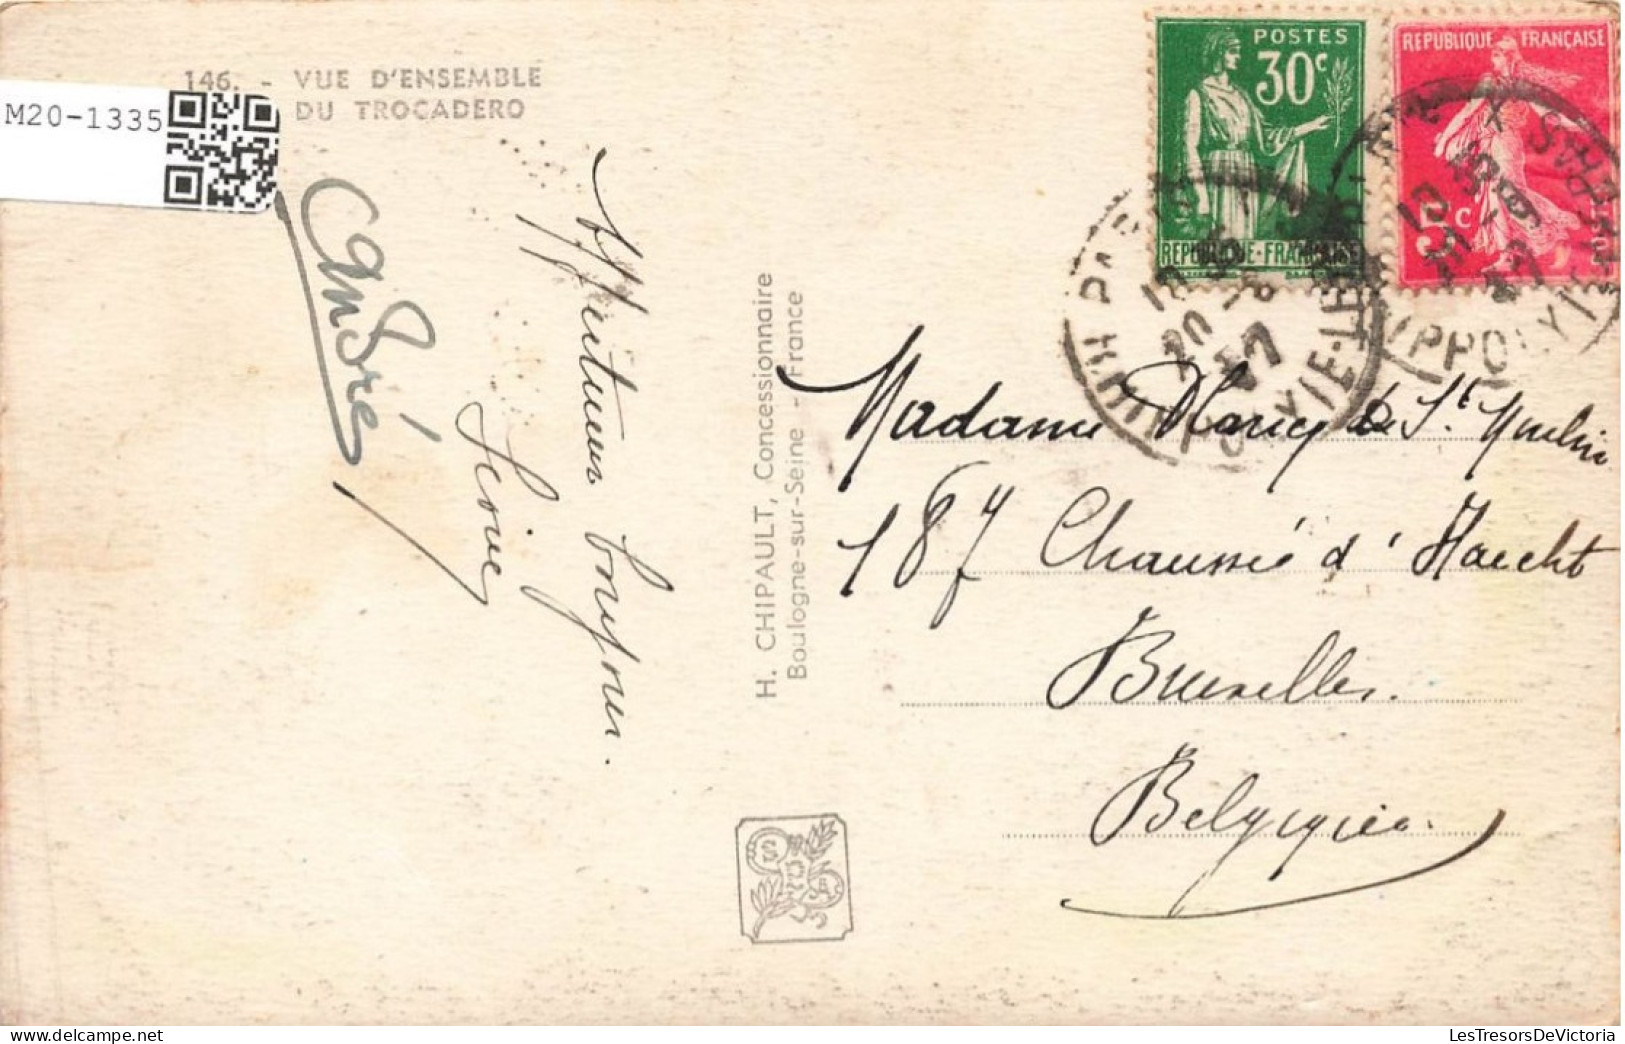 146. - VUE D'ENSEMBLE
DU TROCADERO
M20-1335
André
Affectueux bonjour.
H. CHIPAULT, Concessionnaire
Boulogne-sur-Seine - France
POSTES
30c
REPUBLIQUE·FRANÇAISE
REPUBLIQUE FRANÇAISE
5c
PARIS
HIPPOLYTE
Madame Marcq de St Moulin
187 Chaussée d'Haecht
Bruxelles.
Belgique.
LesTresorsDeVictoria